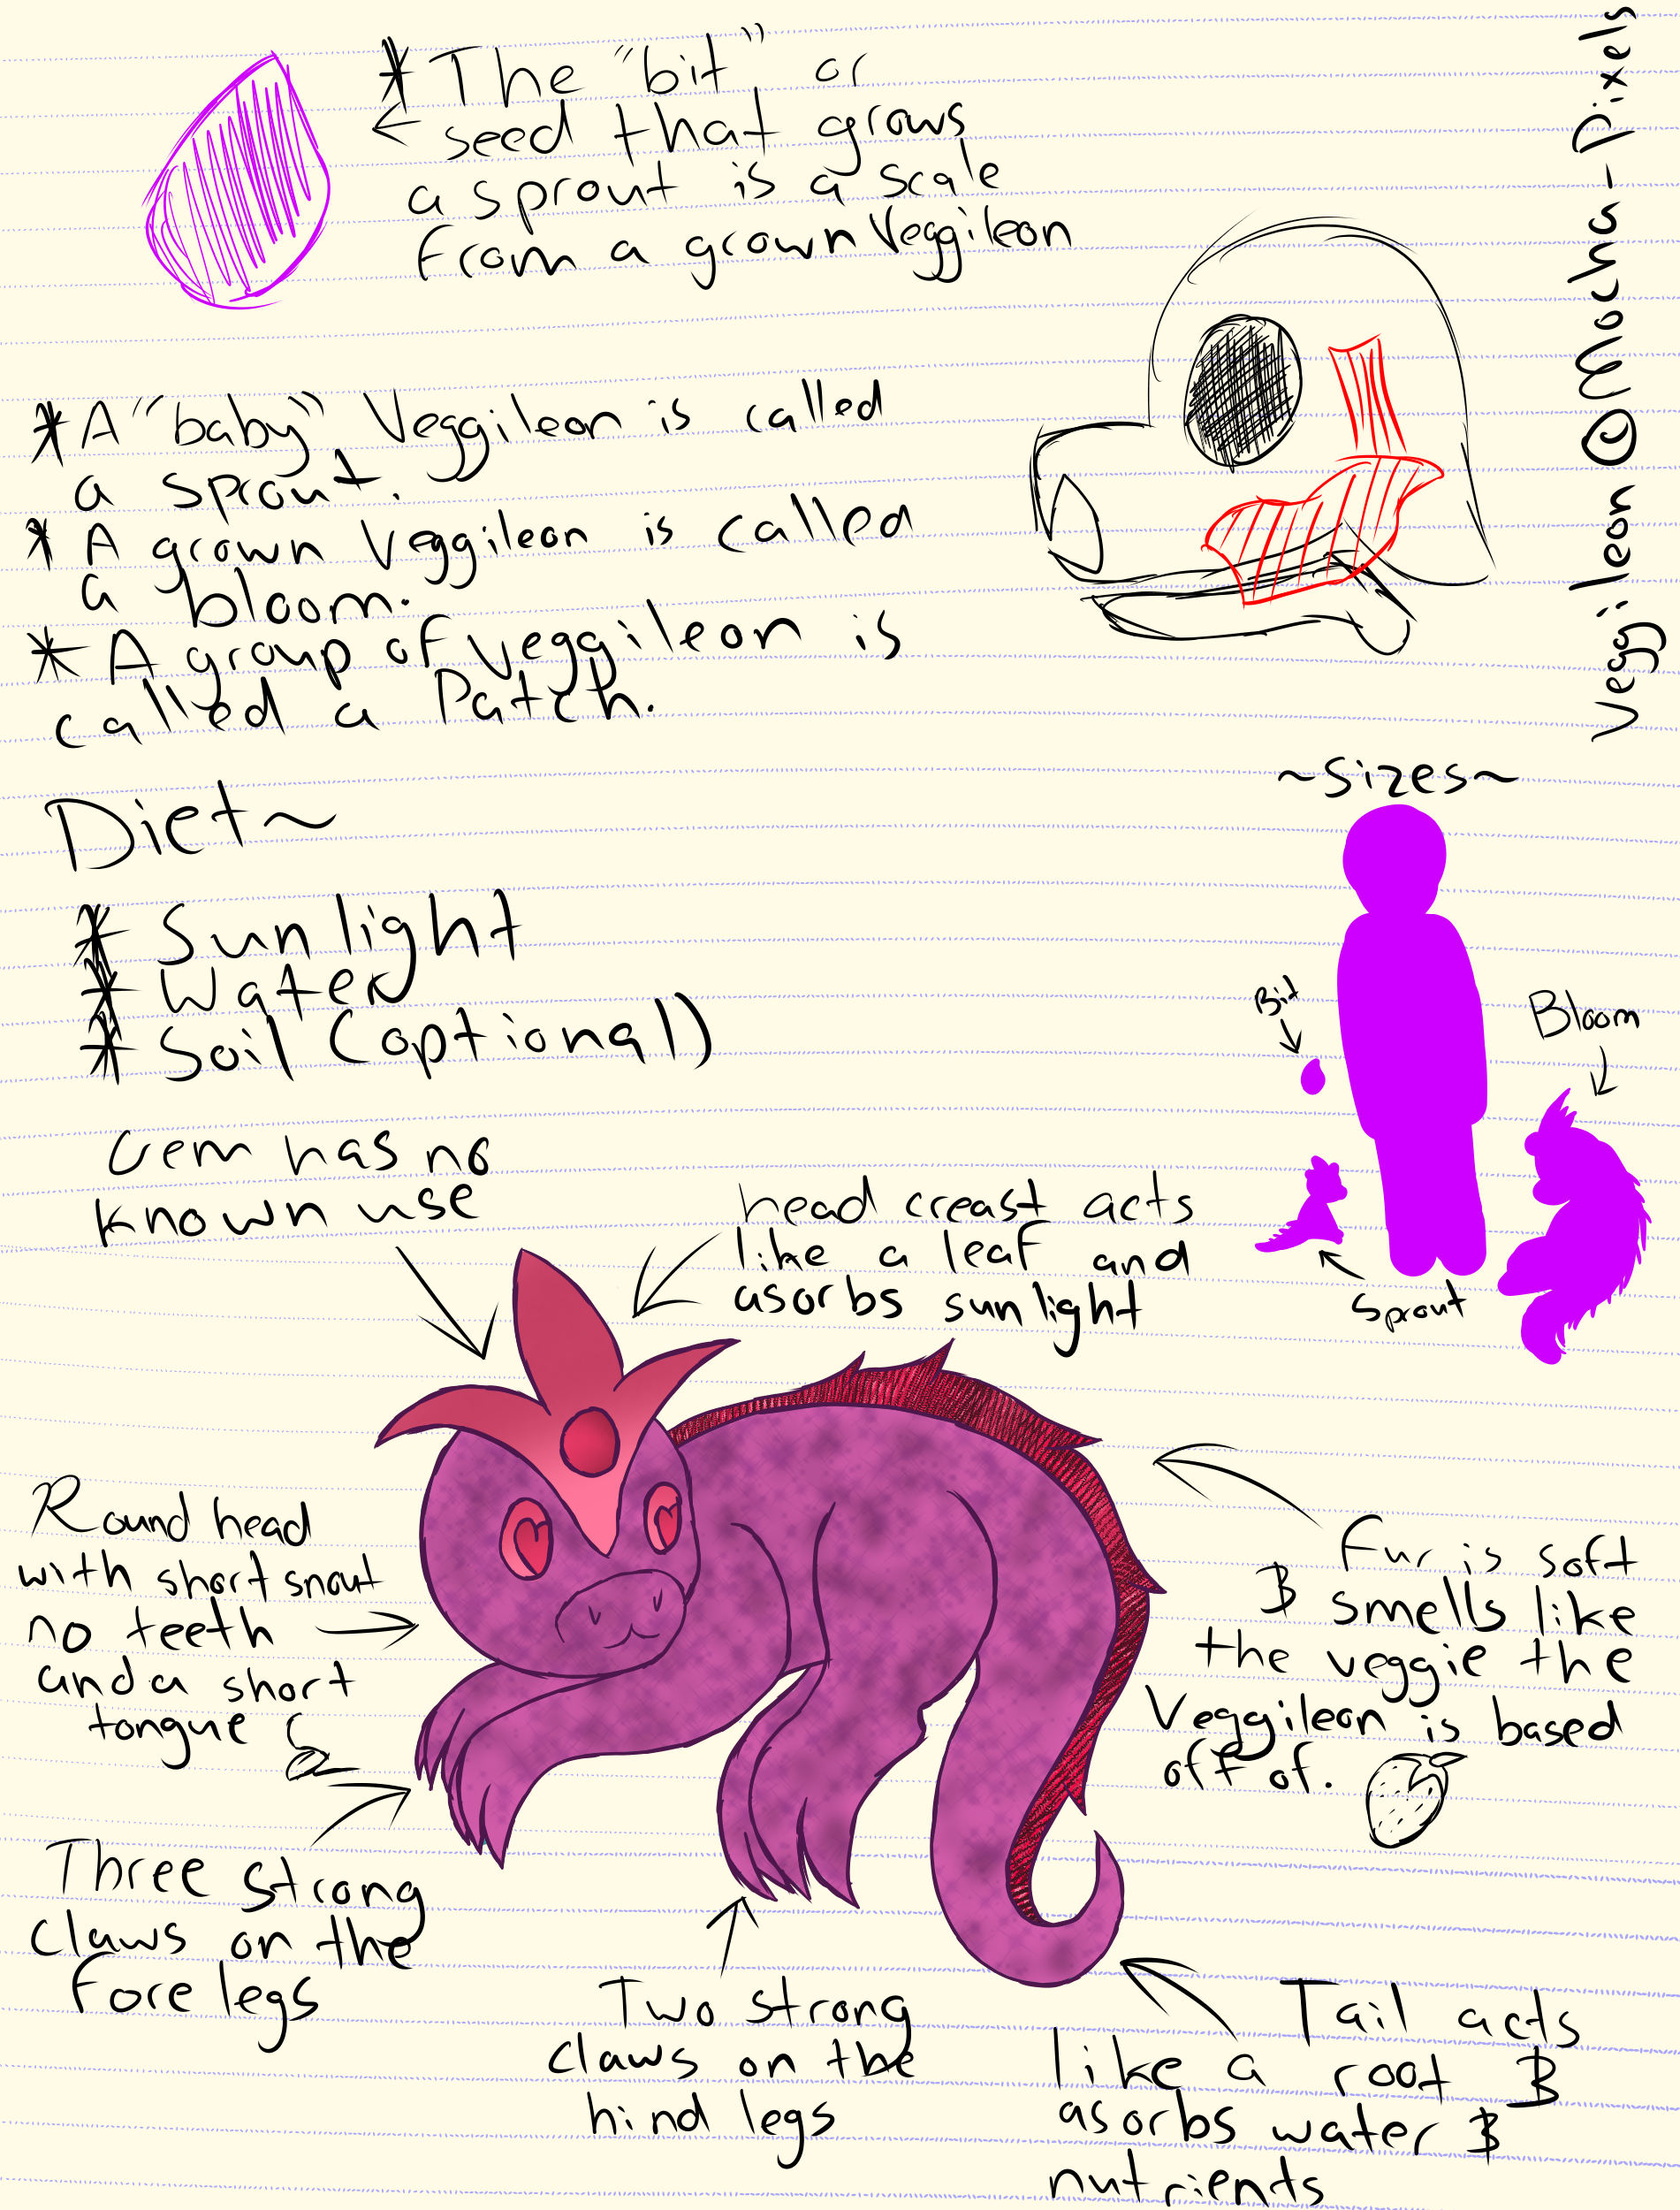 * The "bit" or
seed that grows
a sprout is a scale
from a grown Veggileon
Veggileon @Mocha-Pixels
* A "baby" Veggileon is called
a sprout.
* A grown Veggileon is called
a bloom.
* A group of veggileon is
called a Patch.
~Sizes~
Bit
Bloom
Sprout
Diet~
* Sunlight
* Water
* Soil (optional)
Gem has no
known use
head creast acts
like a leaf and
asorbs sunlight
Round head
with short snout
no teeth
and a short
tongue
Fur is soft
& smells like
the veggie the
Veggileon is based
off of.
Three strong
claws on the
fore legs
Two strong
claws on the
hind legs
Tail acts
like a root &
asorbs water &
nutrients